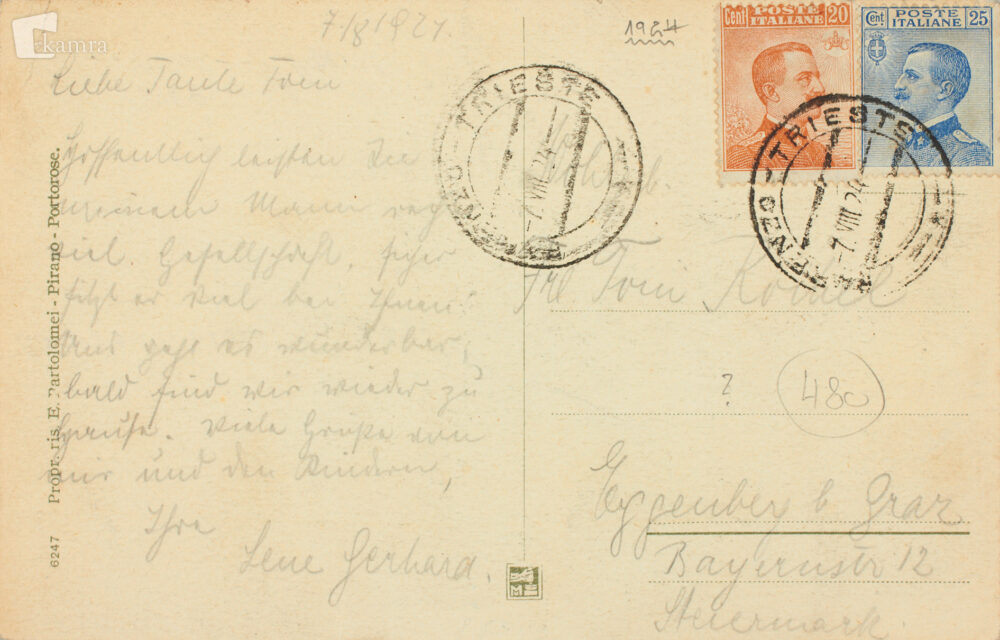 kamra
7/8 1924.
1924
Liebe Tante Toni
Hoffentlich leisten Sie
meinem Mann recht
viel Gesellschaft. Sicher
sitzt er viel bei Ihnen.
Uns geht es wunderbar,
bald sind wir wieder zu
Hause. Viele Grüße von
mir und den Kindern,
Ihre
Lene Gerhard.
6247 Propr. ris. E. Bartolomei - Pirano - Portorose.
Cent POSTE ITALIANE 20
Cent POSTE ITALIANE 25
PARENZO - TRIESTE
-7 VIII 24
PARENZO - TRIESTE
-7 VIII 24
Frl Toni
?
480
Eggenberg b Graz
Bayernstr 12
Steiermark.